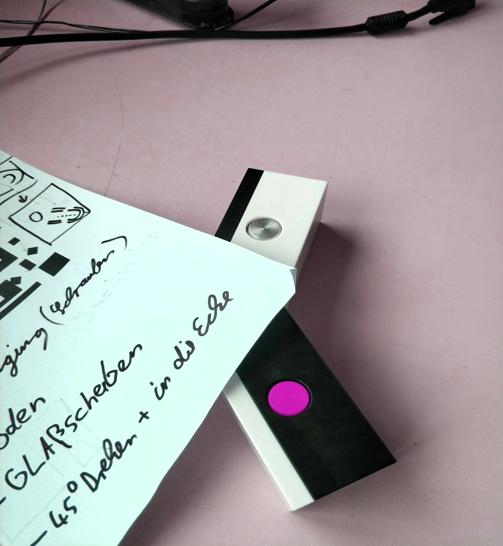 (Schrauben)
- GLAßscheiben
- 45° Drehen + in die Ecke